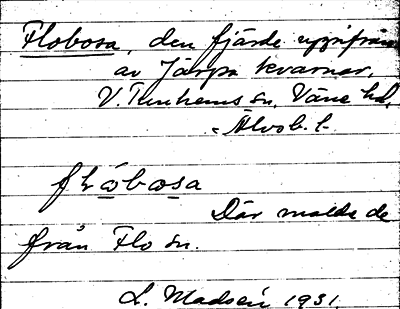 Flobosa, den fjärde uppifrån
av Järpa kvarnar,
V. Tunhems sn, Väne hd,
Älvsb. l.
flω̱bω̱sa
Där malde de
från Flo sn.
L. Madsén 1931.